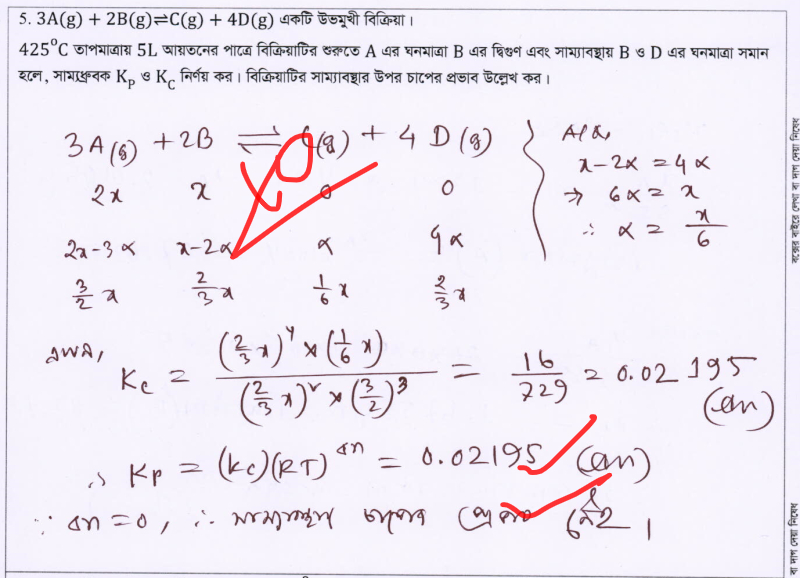 5. 3A(g) + 2B(g)⇌C(g) + 4D(g) একটি উভমুখী বিক্রিয়া।
425°C তাপমাত্রায় 5L আয়তনের পাত্রে বিক্রিয়াটির শুরুতে A এর ঘনমাত্রা B এর দ্বিগুণ এবং সাম্যাবস্থায় B ও D এর ঘনমাত্রা সমান
হলে, সাম্যধ্রুবক K_P ও K_C নির্ণয় কর। বিক্রিয়াটির সাম্যাবস্থার উপর চাপের প্রভাব উল্লেখ কর।
3A(g) + 2B ⇌ C(g) + 4D(g)
2x x 0 0
2x-3α x-2α α 4α
3/2 x 2/3 x 1/6 x 2/3 x
x-2α = 4α
→ 6α = x
∴ α = x/6
এখন,
Kc = (2/3 x)^4 × (1/6 x) / (2/3 x)^2 × (3/2)^3 = 16/729 = 0.02195 (Ans)
∴ Kp = (Kc)(RT)^Δn = 0.02195 (Ans)
∵ Δn = 0, ∴ সাম্যাবস্থায় চাপের প্রভাব নেই।
বক্সের বাইরে লেখা বা দাগ দেয়া নিষেধ
বা দাগ দেয়া নিষেধ